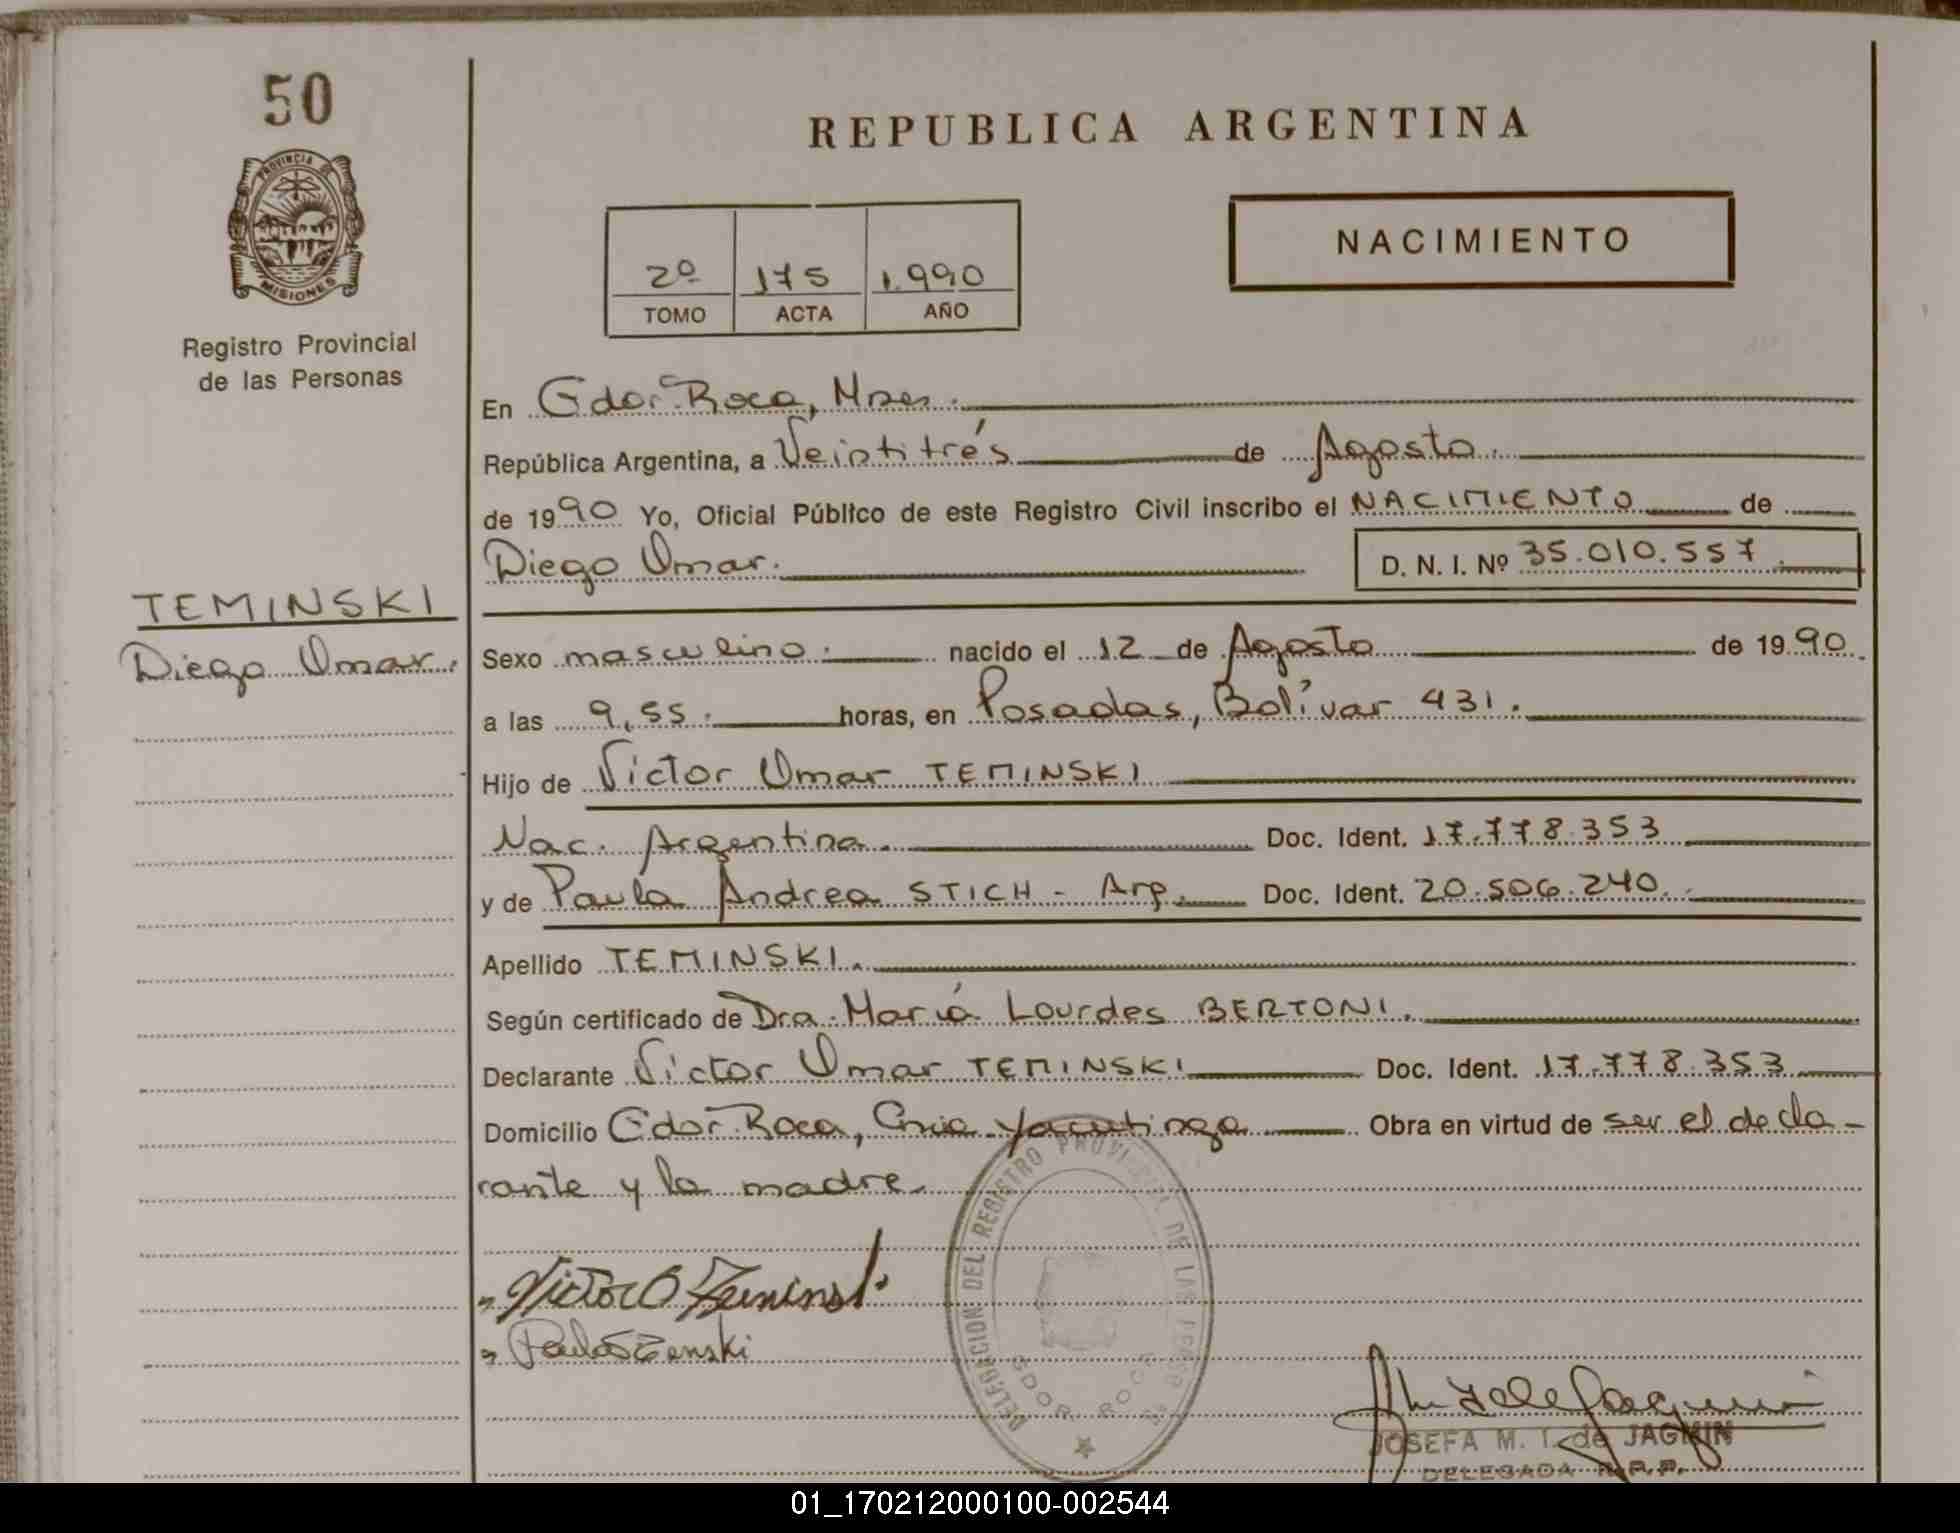 50
REPUBLICA ARGENTINA
PROVINCIA DE
MISIONES
NACIMIENTO
2º 175 1.990
TOMO ACTA AÑO
Registro Provincial
de las Personas
En Gdor. Roca, Mnes.
República Argentina, a Veintitrés de Agosto.
de 1990 Yo, Oficial Público de este Registro Civil inscribo el NACIMIENTO de
Diego Omar. D. N. I. Nº 35.010.557
TEMINSKI
Diego Omar.
Sexo masculino. nacido el 12 de Agosto de 1990.
a las 9,55. horas, en Posadas, Bolívar 431.
Hijo de Victor Omar TEMINSKI
Nac. Argentina. Doc. Ident. 17.778.353
y de Paula Andrea STICH - Arg. Doc. Ident. 20.506.240.
Apellido TEMINSKI.
Según certificado de Dra. María Lourdes BERTONI.
Declarante Victor Omar TEMINSKI Doc. Ident. 17.778.353
Domicilio Gdor. Roca, Cnia Yacutinga Obra en virtud de ser el decla-
rante y la madre.
DELEGACION DEL REGISTRO PROVINCIAL DE LAS PERSONAS
GDOR. ROCA
Victor O Teminski
JOSEFA M. I. de JAGMIN
DELEGADA R.P.P.
01_170212000100-002544